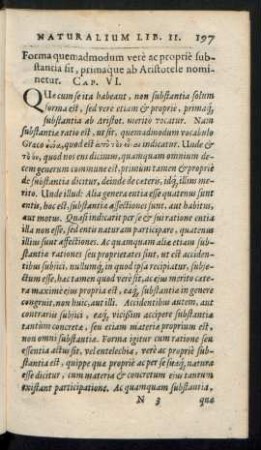 NATURALIUM LIB. II. 197
Forma quemadmodum verè ac propriè sub-
stantia sit, primaque ab Aristotele nomi-
netur. CAP. VI.
QUæ cum se ita habeant, non substantia solum
forma est, sed vere etiam & propriè, primaq́;
substantia ab Aristot. merito vocatur. Nam
substantia ratio est, ut sit, quemadmodum vocabulo
Græco indicatur. Unde &
quod nos ens dicimus, quamquam omnium de-
cem generum commune est, primum tamen & propriè
de substantia dicitur, deinde de cæteris, idq́; illius me-
rito. Unde illud: Alia genera entia esse quatenus sunt
entis, hoc est, substantiæ affectiones sunt, aut habitus,
aut motus. Quasi indicarit per se & sui ratione entia
illa non esse, sed entu naturam participare, quatenus
illius sunt affectiones. Ac quamquam aliæ etiam sub-
stantiæ rationes seu proprietates sunt, ut est acciden-
tibus subjici, nullumq́; in quod ipsa recipiatur, subje-
ctum esse, hæc tamen quod verè sit, ac ejus merito cæte-
ra maximè ejus propria est, eaq́; substantiæ in genere
congruit, non huic, aut illi. Accidentibus autem, aut
contrariis subjici, eaq́; vicissim accipere substantiæ
tantùm concretæ, seu etiam materiæ proprium est,
non omni substantiæ. Forma igitur cum ratione seu
essentia actus sit, vel entelechia, verè ac propriè sub-
stantia est, quippe qua propriè cujusque rei esse, seu na-
tura esse dicitur, cum materia & concretum ejus tantum
existant participatione. Ac quamquam substantia,
N 3 quæ